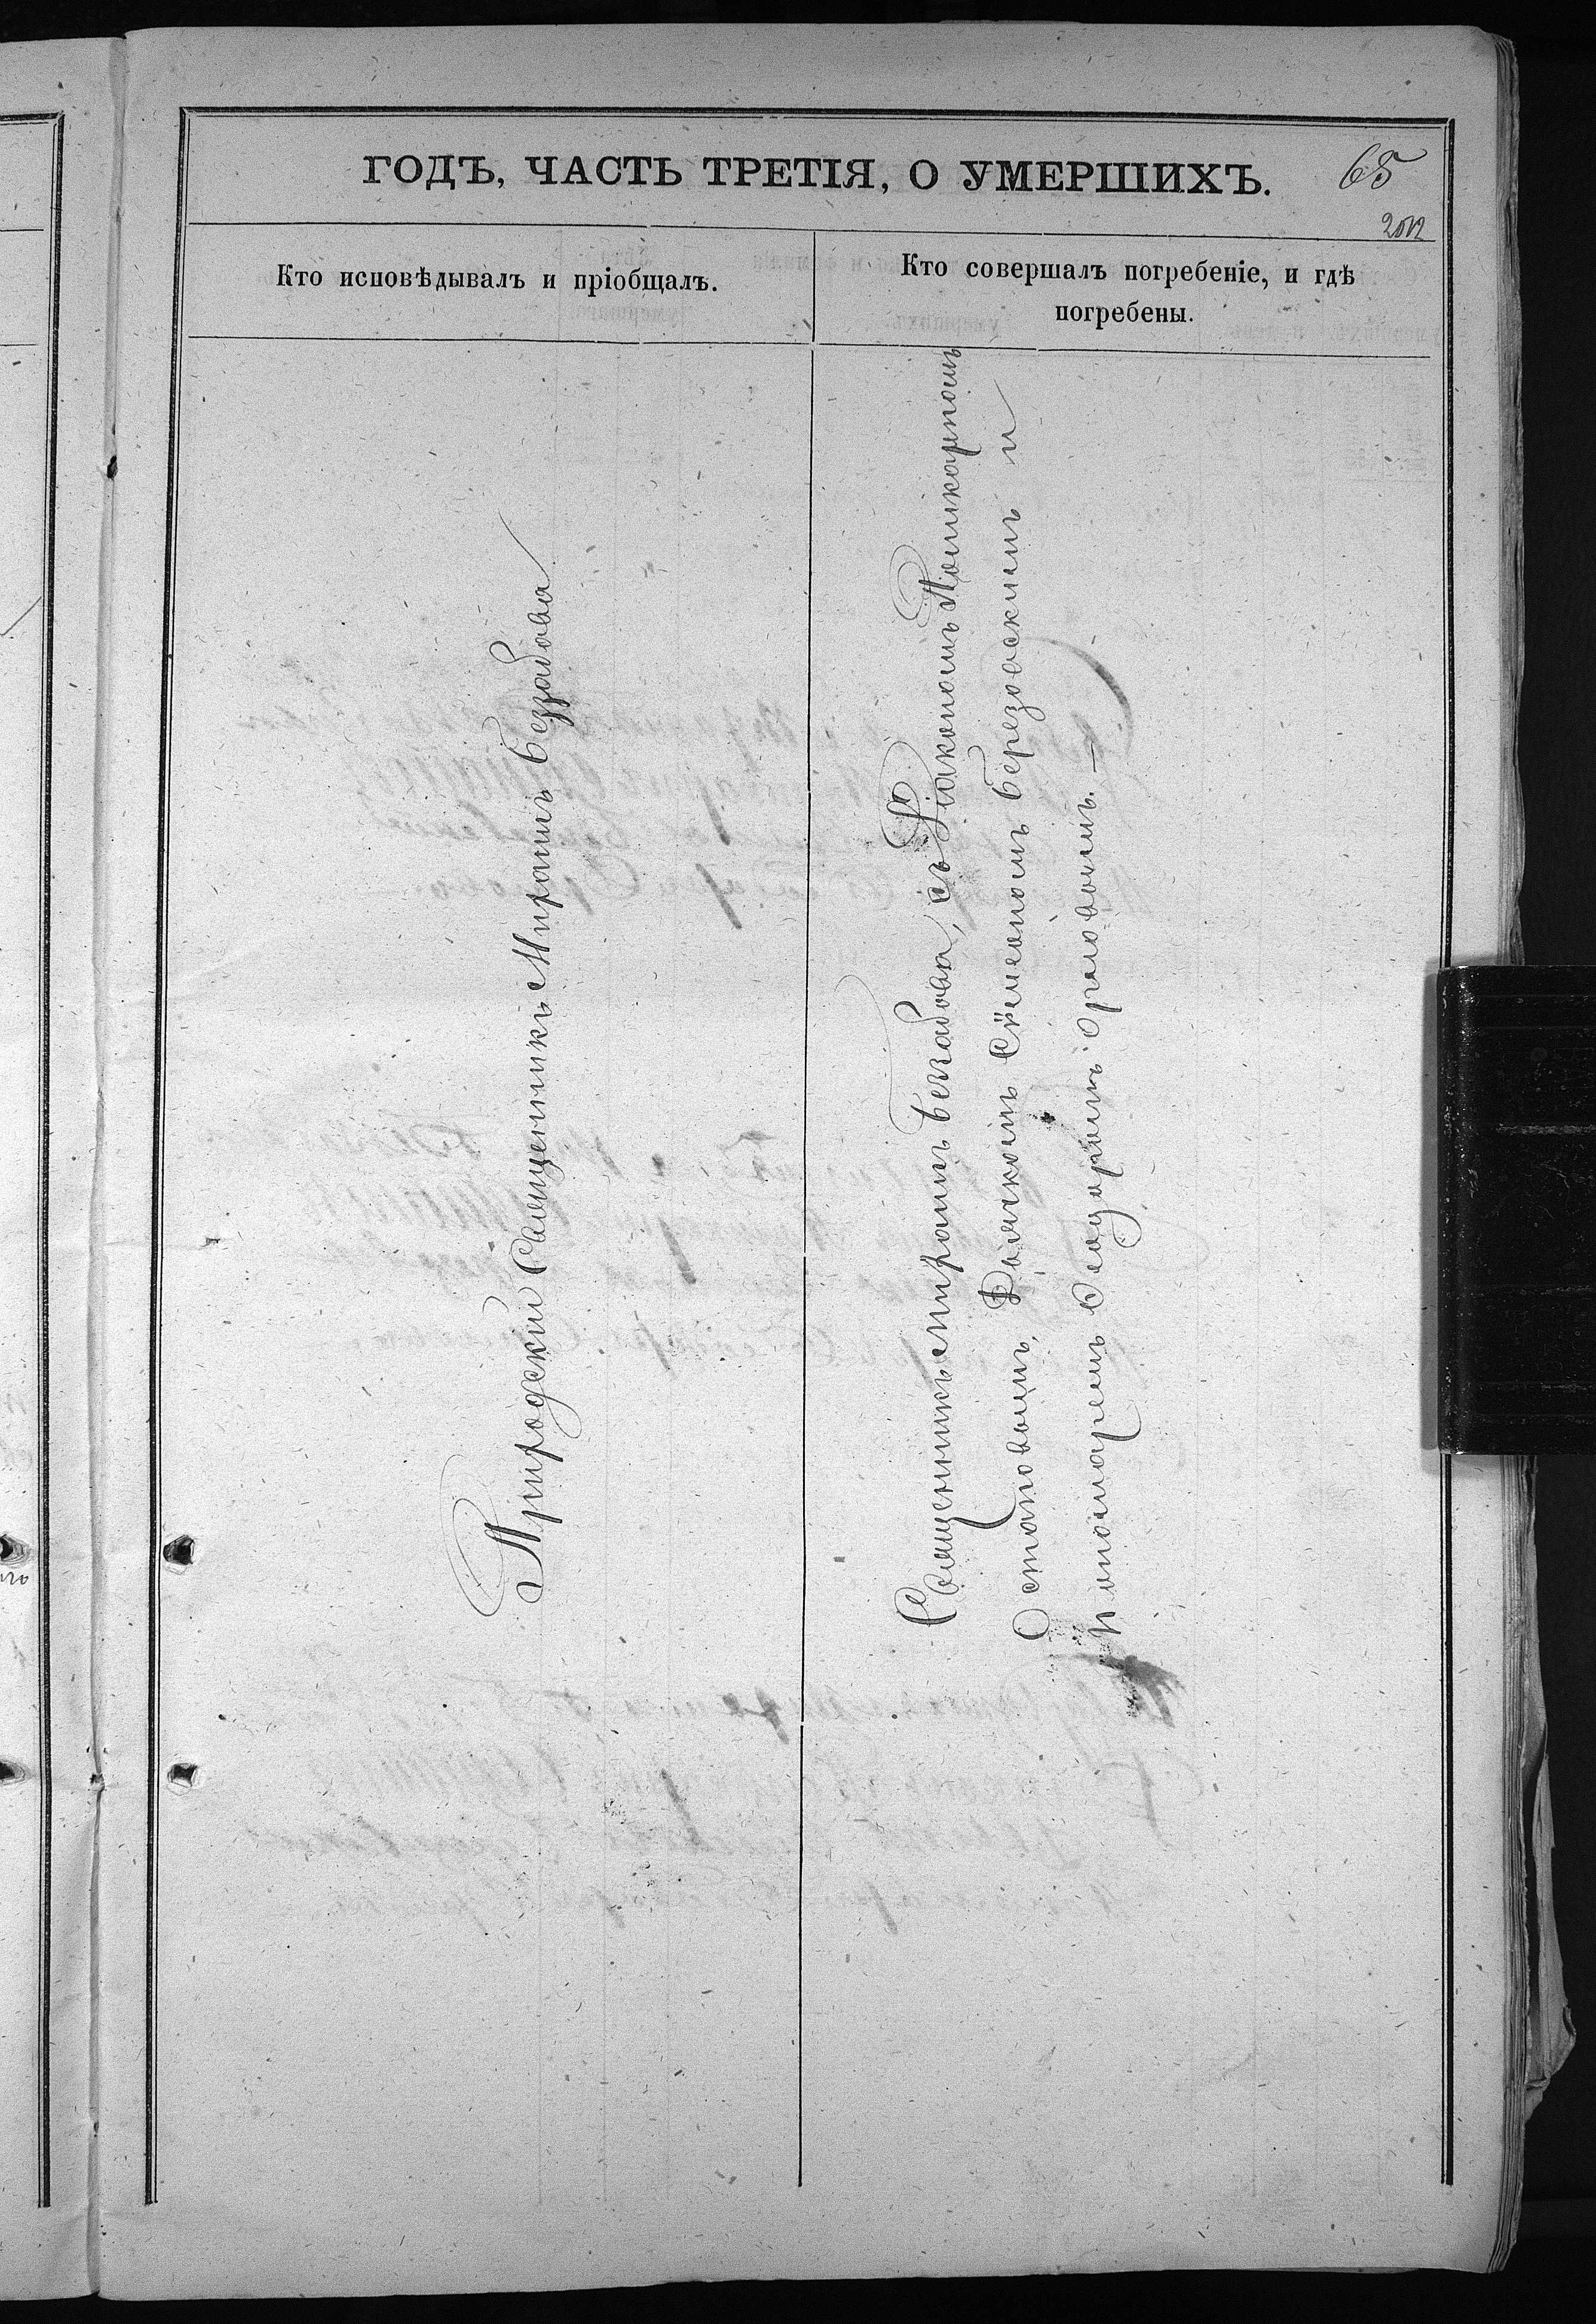 ГОДЪ, ЧАСТЬ ТРЕТІЯ, О УМЕРШИХЪ.
65
Кто исповѣдывалъ и пріобщалъ.
Кто совершалъ погребеніе, и гдѣ
погребены.
Приходскій Священникъ Миронъ Беззабава
Священникъ Миронъ Беззабава, съ Діакономъ Поликарпомъ
Остаповымъ, Дьячкомъ Сѵмеономъ Березовскимъ и
Пономаремъ Ѳеодоромъ Орловымъ. —